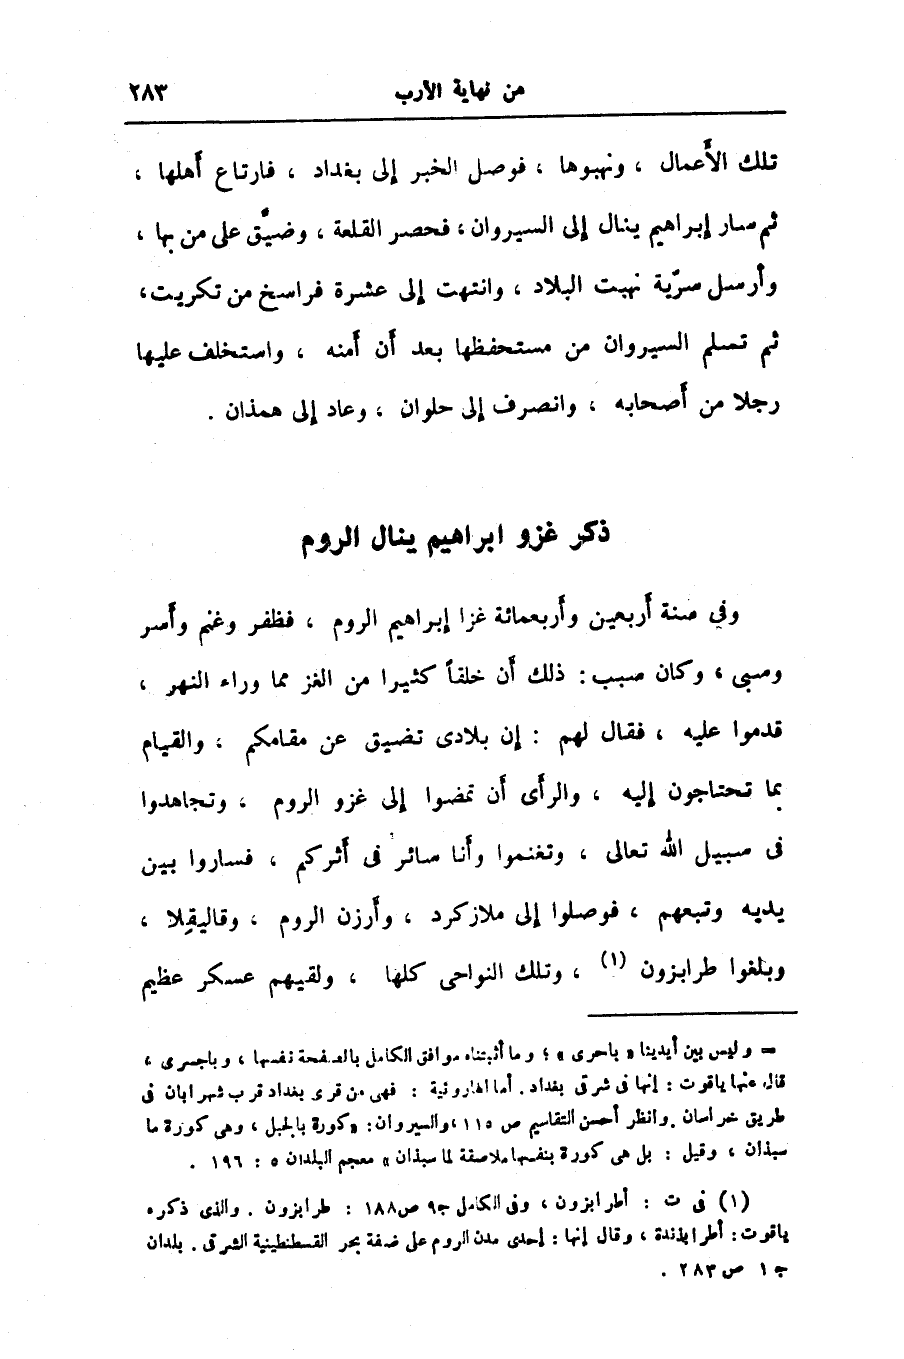 من نهاية الأرب ٢٨٣
تلك الأَعمال ، ونهبوها ، فوصل الخبر إلى بغداد ، فارتاع أَهلها ،
ثم سار إبراهيم ينال إلى السيروان ، فحصر القلعة ، وضيَّق على من بها ،
وأَرسل سرّية نهبت البلاد ، وانتهت إلى عشرة فراسخ من تكريت ،
ثم تسلم السيروان من مستحفظها بعد أَن أَمنه ، واستخلف عليها
رجلا من أَصحابه ، وانصرف إلى حلوان ، وعاد إلى همذان .
ذكر غزو ابراهيم ينال الروم
وفي سنة أَربعين وأَربعمائة غزا إبراهيم الروم ، فظفر وغنم وأَسر
وسبى ، وكان سبب : ذلك أَن خلقاً كثيرا من الغز مما وراء النهر ،
قدموا عليه ، فقال لهم : إن بلادى تضيق عن مقامكم ، والقيام
بما تحتاجون إليه ، والرأَى أَن تمضوا إلى غزو الروم ، وتجاهدوا
فى سبيل الله تعالى ، وتغنموا وأَنا سائر فى أَثركم ، فساروا بين
يديه وتبعهم ، فوصلوا إلى ملازكرد ، وأَرزن الروم ، وقاليقلا ،
وبلغوا طرابزون (١) ، وتلك النواحى كلها ، ولقيهم عسكر عظيم
= وليس بين أيدينا « باحرى » ؛ وما أثبتناه موافق الكامل بالصفحة نفسها ، وباجسرى ،
قال عنها ياقوت : إنها فى شرقى بغداد . أما الهارونية : فهى من قرى بغداد قرب شهرابان فى
طريق خراسان . وانظر أحسن التقاسيم ص ١١٥ ، والسيروان : « كورة بالجبل ، وهى كورة ما
سبذان ، وقيل : بل هى كورة بنفسها ملاصقة لما سبذان » معجم البلدان ٥ : ١٩٦ .
(١) فى ت : أطرابزون ، وفى الكامل ج٩ ص١٨٨ : طرابزون . والذى ذكره
ياقوت : أطرابذندة ، وقال إنها : إحدى مدن الروم على ضفة بحر القسطنطينية الشرقى . بلدان
ج١ ص٢٨٣ .